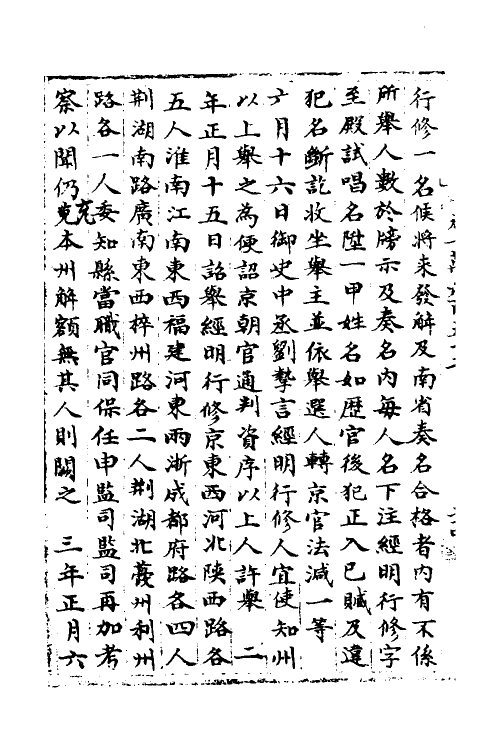 行修一名候將來發解及南省奏名合格者內有不係
所舉人數於牓示及奏名內每人名下注經明行修字
至殿試唱名陞一甲姓名如歷官後犯正入己贓及違
犯名斷訖收坐舉主並依舉選人轉京官法減一等
六月十六日御史中丞劉摯言經明行修人宜使知州
以上舉之為便詔京朝官通判資序以上人許舉 二
年正月十五日詔舉經明行修京東西河北陝西路各
五人淮南江南東西福建河東兩浙成都府路各四人
荆湖南路廣南東西梓州路各二人荆湖北夔州利州
路各一人委知縣當職官同保任申監司監司再加考
察以聞仍充本州解額無其人則闕之 三年正月六